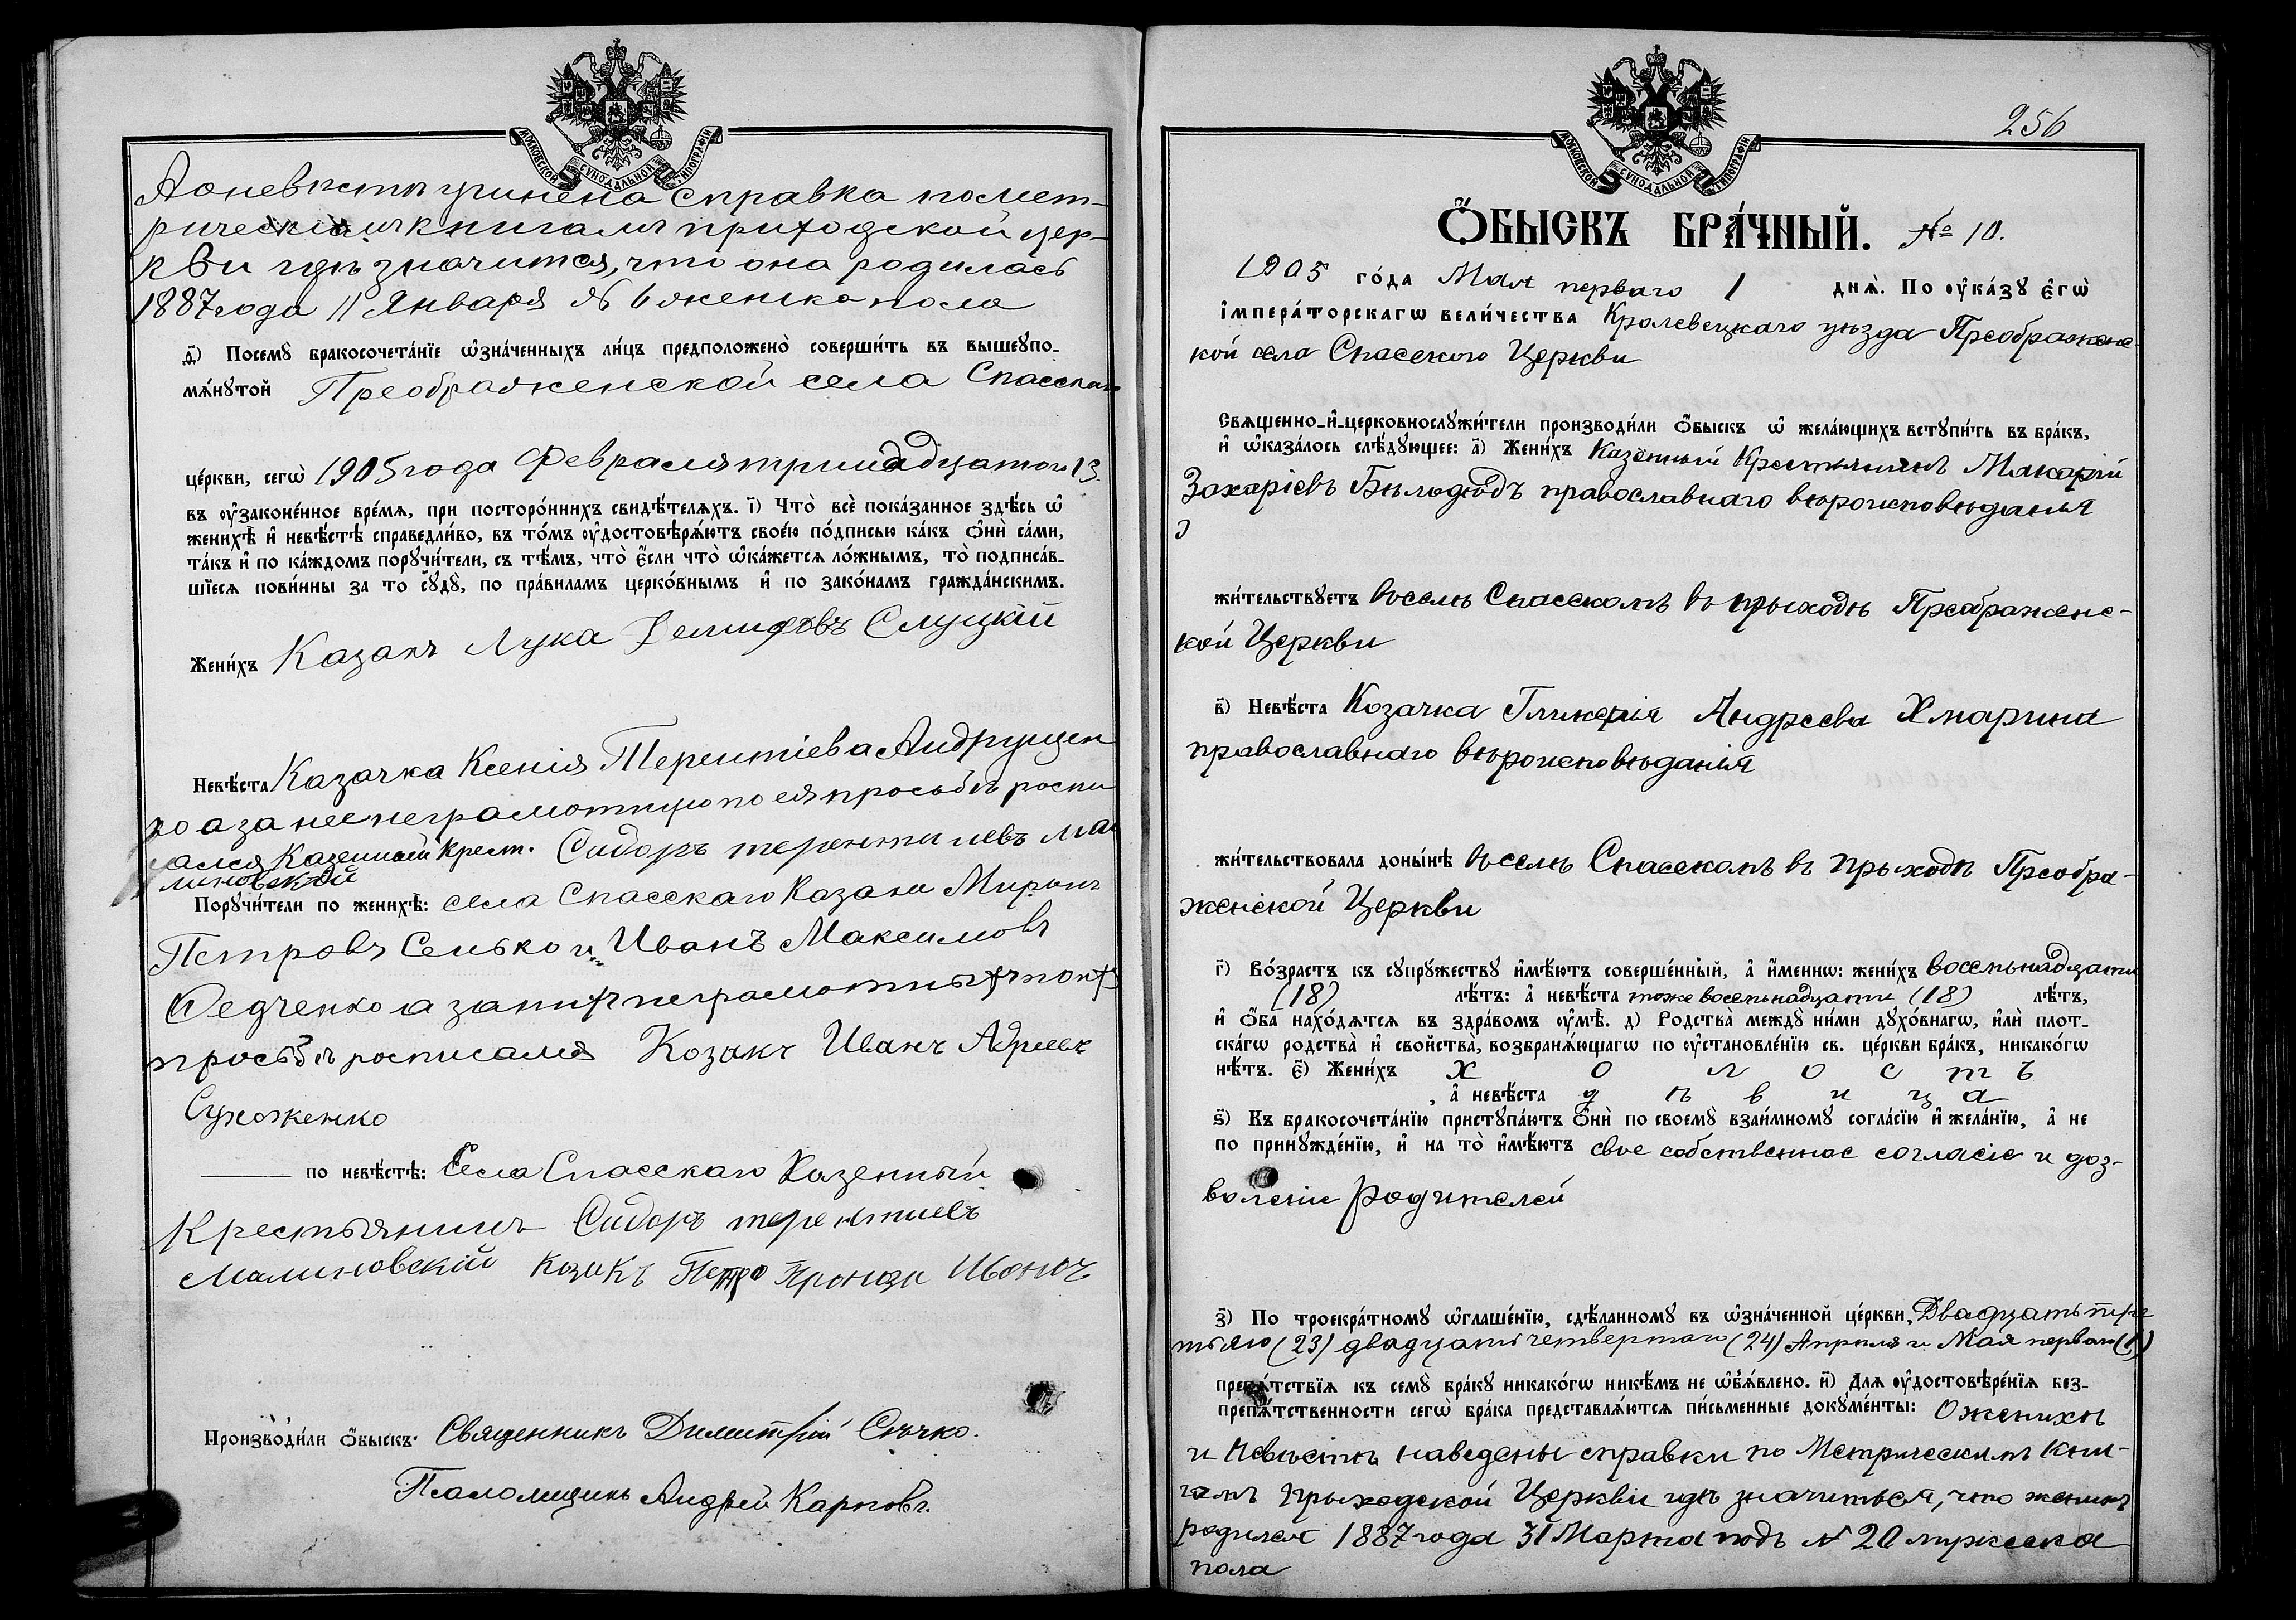 МОСКОВСКОЙ СУНОДАЛЬНОЙ ТИПОГРАФІИ
А о невѣстѣ учинена справка по мет-
рическимъ книгамъ приходской цер-
кви гдѣ значится, что она родилась
1887 года 11 Января № 6 женска пола
д҃і) Посемꙋ̀ бракосочета́нїе ѡ҆зна́ченныхъ ли́цъ предположено̀ соверши́ть въ вышеꙋпо-
мѧ́нꙋтой Преображенской села Спасскаго
це́ркви, сегѡ̀ 1905 года Февраля тринадцатого 13.
въ ᲂу҆законе́нное вре́мѧ, при посторо́ннихъ свидѣ́телѧхъ. і҃) Что̀ всѐ пока́занное здѣ́сь ѡ҆
женихѣ̀ и҆ невѣ́стѣ справедли́во, въ то́мъ ᲂу҆достовѣрѧ́ютъ свое́ю по́дписью ка́къ ѻ҆нѝ са́ми,
та́къ и҆ по ка́ждомъ порꙋчи́тели, съ тѣ́мъ, что̀ є҆́сли что̀ ѡ҆ка́жетсѧ ло́жнымъ, то̀ подписа́в-
шїесѧ пови́нны за то сꙋдꙋ̀, по пра́виламъ церко́внымъ и҆ по зако́намъ гражда́нскимъ.
Жени́хъ Казакъ Лука Демидовъ Слуцкій
Невѣ́ста Казачка Ксенія Терентіева Андрущен
ко а за нее неграмотную по ея просьбѣ роспи
сался Казенный Крест. Сидоръ терентиевъ Ма
линовскій
Порꙋчи́тели по женихѣ̀: села Спасскаго Казаки Миронъ
Петровъ Сенько и Иванъ Максимовъ
Федченко а за нихъ неграмотныхъ по ихъ
просьбѣ росписался Козакъ Иванъ Адреевъ
по невѣ́стѣ: Села Спасскаго Казенный
Крестьянинъ Сидоръ терентиевъ
Малиновскій козакъ Иванъ
Производи́ли ѻ҆́быскъ: Священникъ Димитрій Сѣчко.
Псаломщикъ Андрей Карповъ.
256
МОСКОВСКОЙ СУНОДАЛЬНОЙ ТИПОГРАФІИ
Ѻ҆́БЫСКЪ БРА́ЧНЫЙ. № 10.
1905 го́да Мая перваго 1 днѧ̀. По ᲂу҆ка́зꙋ є҆гѡ̀
і҆мпера́торскагѡ вели́чества Кролевецкаго уѣзда Преображенс-
кой села Спасского Церкви
Свѧщенно-и҆-церковнослꙋжи́тели производи́ли ѻ҆́быскъ ѡ҆ жела́ющихъ встꙋпи́ть въ бра́къ,
и҆ ѡ҆каза́лось слѣ́дꙋющее: а҃) Жени́хъ Казенный Крестьянинъ Макарій
Захаріевъ Бѣлодѣдъ православнаго вѣроисповѣданія
жи́тельствꙋетъ въ селѣ Спасскомъ въ прыходѣ Преображенс-
кой Церкви
в҃) Невѣ́ста Козачка Гликерія Андреева Хмарина
православнаго вѣроисповѣданія
жи́тельствовала доны́нѣ въ селѣ Спасскомъ въ прыходѣ Преобра-
женской Церкви
г҃) Во́зрастъ къ сꙋпрꙋ́жествꙋ и҆мѣ́ютъ соверше́нный, а҆ и҆́меннѡ: жени́хъ восемьнадцати
(18) лѣ́тъ: а҆ невѣ́ста тоже восемьнадцати (18) лѣ́тъ,
и҆ ѻ҆́ба нахо́дѧтсѧ въ здра́вомъ ᲂу҆мѣ̀. д) Родства̀ междꙋ̀ ни́ми дꙋхо́внагѡ, и҆лѝ плот-
ска́гѡ родства̀ и҆ свойства̀, возбранѧ́ющагѡ по ᲂу҆становле́нїю св. це́ркви бра́къ, никако́гѡ
нѣ́тъ. є҃) Жени́хъ холостъ
, а҆ невѣ́ста дѣвица
ѕ҃) Къ бракосочета́нїю пристꙋпа́ютъ ѻ҆нѝ по своемꙋ̀ взаи́мномꙋ согла́сїю и҆ жела́нїю, а҆ не
по принꙋжде́нїю, и҆ на то̀ и҆мѣ́ютъ свое собственное согласіе и доз-
воленіе родителей
з҃) По троекра́тномꙋ ѡ҆глаше́нїю, сдѣ́ланномꙋ въ ѡ҆зна́ченной це́ркви, Двадцать тре
тьяго (23) двадцать четвертаго (24) Апрѣля и Мая перваго (1)
препѧ́тствїѧ къ семꙋ̀ бра́кꙋ никако́гѡ никѣ́мъ не ѡ҆б̾ѧ́влено. и҃) Для ᲂу҆достовѣре́нїѧ без-
препѧ́тственности сегѡ̀ бра́ка представлѧ́ютсѧ пи́сьменные докꙋме́нты: О женихѣ
и невѣстѣ наведены справки по Метрическимъ Кни-
гамъ Прыходской Церкви гдѣ значиться, что женихъ
родился 1887 года 31 Марта подъ № 20 мужска
пола